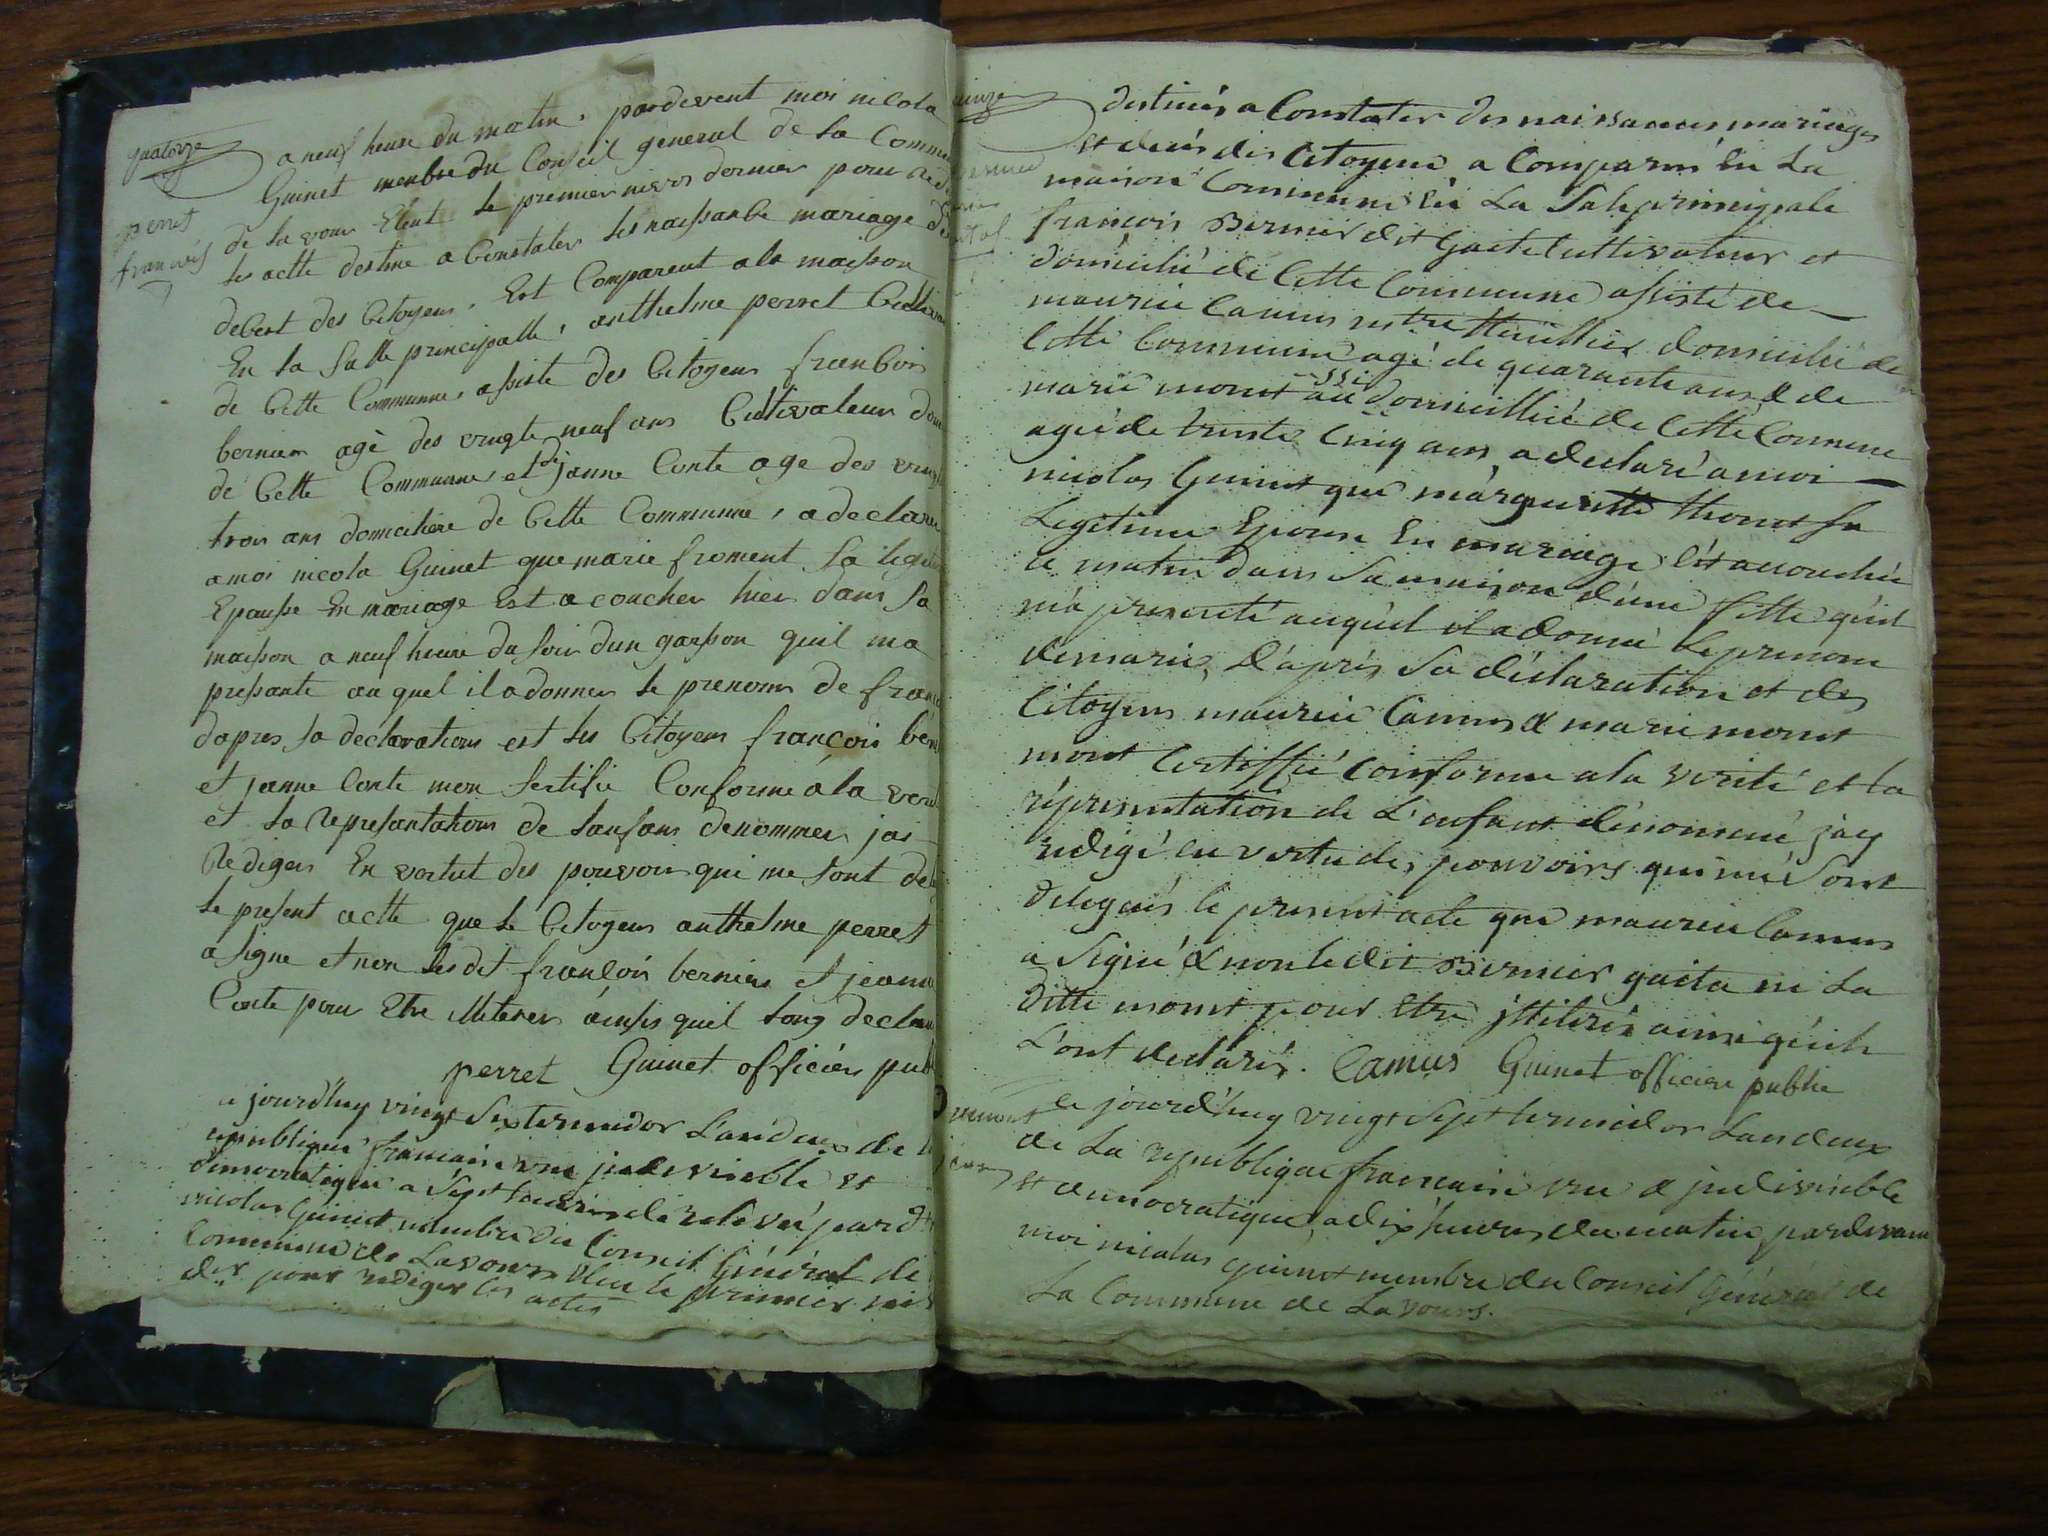 quatorze
perret
francois
a neuf heure du matin, pardevent moi nicola
Guinet menbre du Conseil general de la Commu
de la vour Eleut le premier nivos dernier pour
les actte destine a Constater les naissanbe mariage
debert des Citoyens, Est Comparent a la maisson
En la salle principalle, anthelme perret Cultiva
de Cette Communne, assiste des Citoyens franbois
bernier agè des vingte neuf ans Cultivateur dom
de Cette Communne et de janne Conte age des vingt
trois ans domiciliere de Cette Communne, a declare
a moi nicola Guinet que marie froment sa legit
Epausse En mariage Est a coucher hier dans sa
maisson a neuf heure du soir dun garsson quil ma
pressante au quel il a donner le prenom de franc
dapres sa declarations est les Citoyens françois ber
et janne Conte mon sertifie Conforme a la veri
et la Represantations de lanfans denommer jai
Rediger En vertut des pouvoir qui me sont del
le present actte que le Citoyens anthelme perret
a signe et non les dit françois bernier et jeanne
Conte pour Etre illiterer ainsis quil long declare
perret Guinet officier publ
ce jourd'huy vingt six termidor L'an deux de la
republique francaise une jndivisible et
democratique a sept heures de relevée pard
nicolas Guinet membre du Conseil Général de
Commune de Lavours Elue le premier niv
der pour rediger les actes
quinze
destinés a Constater des naissances mariages
et decés des Citoyens a Comparus En La
maison Commune En La Sale principale
francois Bernier dit Gaite Cultivateur et
domicilié de Cette Commune assisté de
maurice Camus domicilié de
Cette Commune agé de quarante ans & de
marie monet aussi domicilliée de Cette Commune
agée de trente Cinq ans, a declaré a moi
nicolas Guinet que margueritte thomet sa
Legitime Epouse En mariage Est accouchée
ce matin dans sa maison d'une fille qu'il
m'a presenté auquel il a donné Le prenom
de marie, D'aprés sa déclaration et des
Citoyens maurice Camus & marie monet
mont Certiffié conforme a la verité et la
réprésentation de L'enfant dénommé jay
redigé en vertu des pouvoirs qui me sont
delegués le present acte que maurice Camus
a signé & non le dit Bernier gaita ni La
ditte monet pour Etre jlliterés ainsi qu'ils
L'ont declarés. Camus Guinet officier public
ce jourd'huy vingt sept termidor Lan deux
de La republique francaise une & jndivisible
et democratique, a dix heures du matin pardevant
moi nicolas guinet membre du Conseil Général de
La Commune de Lavours.